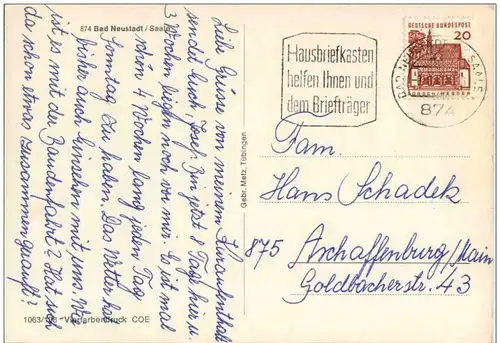 874 Bad Neustadt/Saale
Liebe Grüsse von meinem Kuraufenthalt
sendet Euch, Josef. Bin jetzt 8 Tage hier u.
3 Wochen liegen noch vor mir. Es ist mal
schön 4 Wochen lang jeden Tag
Sonntag zu haben. Das Wetter hat
bisher auch hinsehen mit uns. Wie
ist es mit der Bundenfahrt? Hat sich
da schon etwas zusammen gerauft?
1063/ Vierfarbendruck COE
Gebr. Metz, Tübingen
Hausbriefkasten
helfen Ihnen und
dem Briefträger
DEUTSCHE BUNDESPOST
20
LORSCH/HESSEN
BAD NEUSTADT SAALE
874
Fam.
Hans Schadek
875 Aschaffenburg/Main
Goldbacherstr. 43